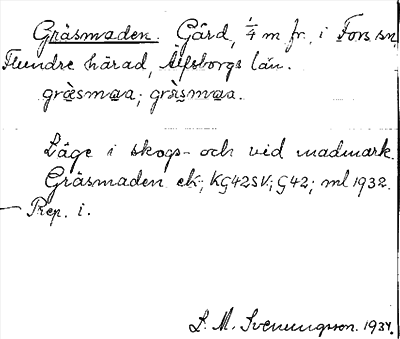 Gräsmaden. Gård, 1/4 m fr., i Fors sn,
Flundre härad, Älfsborgs län.
gräsmaa; gräsmaa.
Läge i skogs- och vid madmark.
Gräsmaden ek; KG42SV; G42; ml 1932.
— Prep. i.
L. M. Svenungsson. 1934.